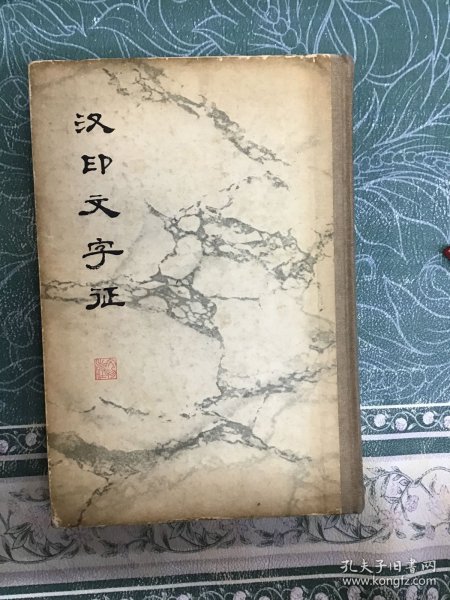 汉印文字征
孔夫子旧书网
www.kongfz.com